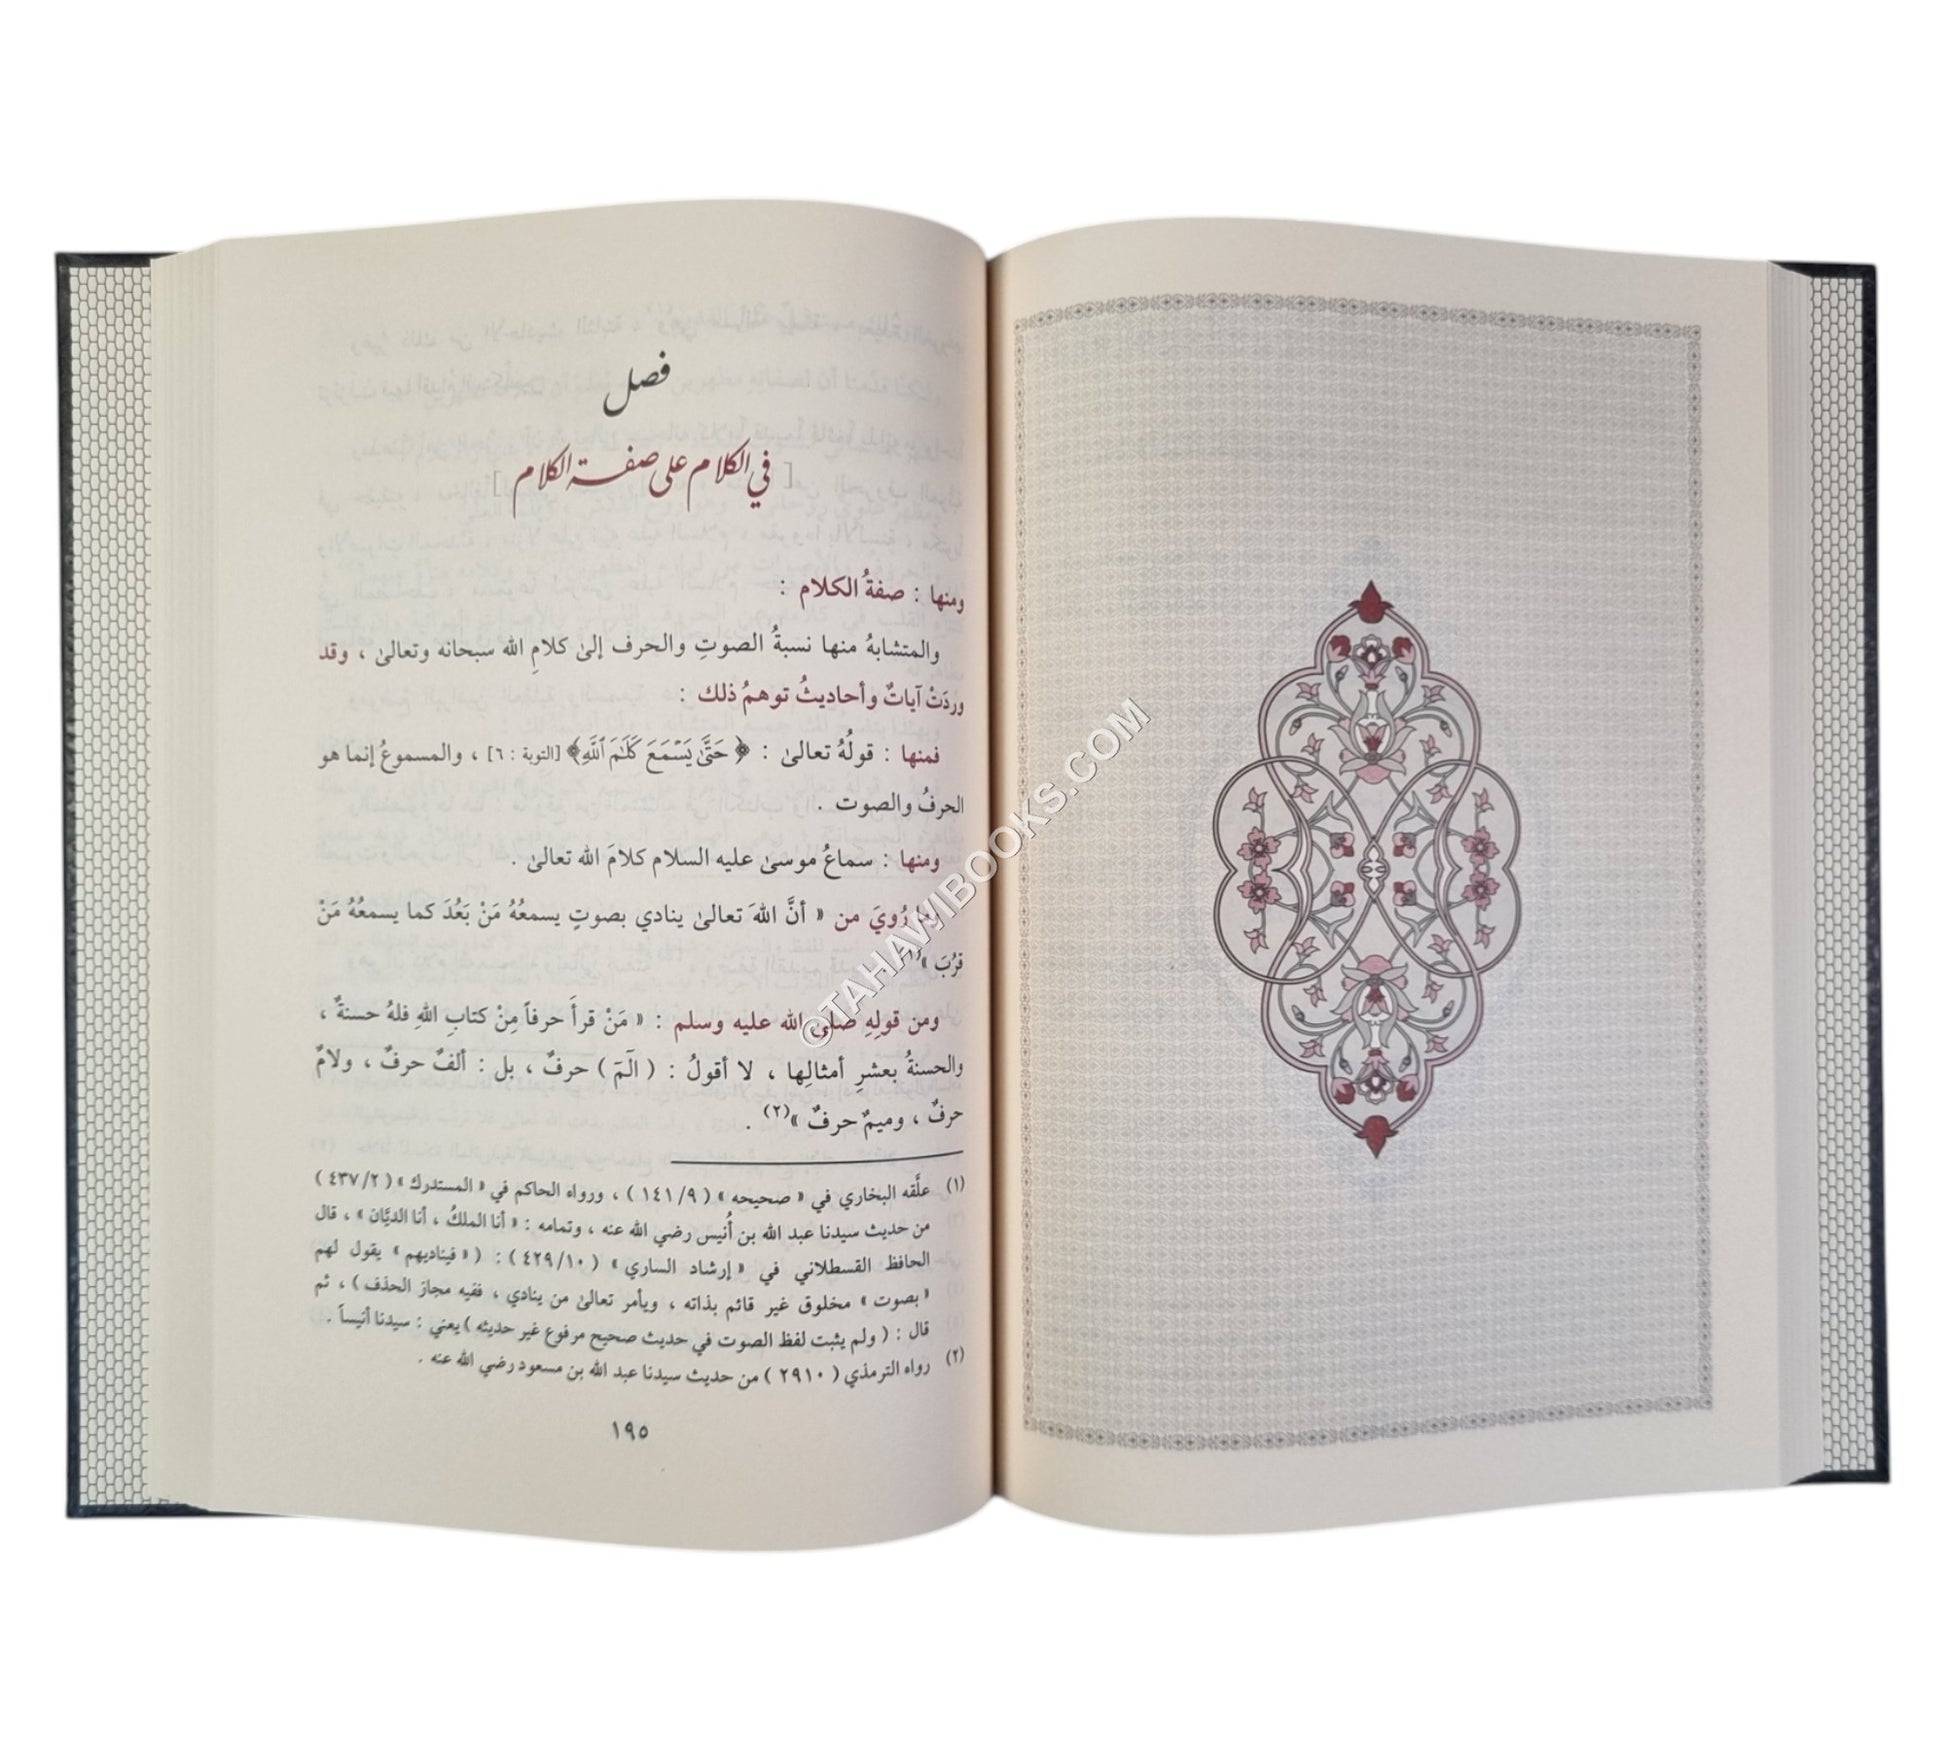 فصل
[ في الكلام على صفة الكلام ]
ومنها : صفةُ الكلام :
والمتشابهُ منها نسبةُ الصوتِ والحرف إلىٰ كلامِ الله سبحانه وتعالىٰ ، وقد
وردَتْ آياتٌ وأحاديثُ توهمُ ذلك :
فمنها : قولُهُ تعالىٰ : ﴿ حَتَّىٰ يَسْمَعَ كَلَٰمَ ٱللَّهِ﴾ [التوبة : ٦] ، والمسموعُ إنما هو
الحرفُ والصوت .
ومنها : سماعُ موسىٰ عليه السلام كلامَ الله تعالىٰ .
رُويَ من « أنَّ اللهَ تعالىٰ ينادي بصوتٍ يسمعُهُ مَنْ بَعُدَ كما يسمعُهُ مَنْ
قرُبَ »(١) .
ومن قولِهِ صلى الله عليه وسلم : « مَنْ قرأَ حرفاً مِنْ كتابِ اللهِ فلهُ حسنةٌ ،
والحسنةُ بعشرِ أمثالِها ، لا أقولُ : ( الٓمٓ ) حرفٌ ، بل : ألفٌ حرفٌ ، ولامٌ
حرفٌ ، وميمٌ حرفٌ »(٢) .
(١) علَّقه البخاري في « صحيحه » ( ١٤١/٩ ) ، ورواه الحاكم في « المستدرك » ( ٤٣٧/٢ )
من حديث سيدنا عبد الله بن أُنيس رضي الله عنه ، وتمامه : « أنا الملكُ ، أنا الديَّان » ، قال
الحافظ القسطلاني في « إرشاد الساري » ( ٤٢٩/١٠ ) : ( « فيناديهم » يقول لهم
« بصوت » مخلوق غير قائم بذاته ، ويأمر تعالىٰ من ينادي ، ففيه مجاز الحذف ) ، ثم
قال : ( ولم يثبت لفظ الصوت في حديث صحيح مرفوع غير حديثه ) يعني : سيدنا أنيساً .
(٢) رواه الترمذي ( ٢٩١٠ ) من حديث سيدنا عبد الله بن مسعود رضي الله عنه .
١٩٥
©TAHAWIBOOKS.COM